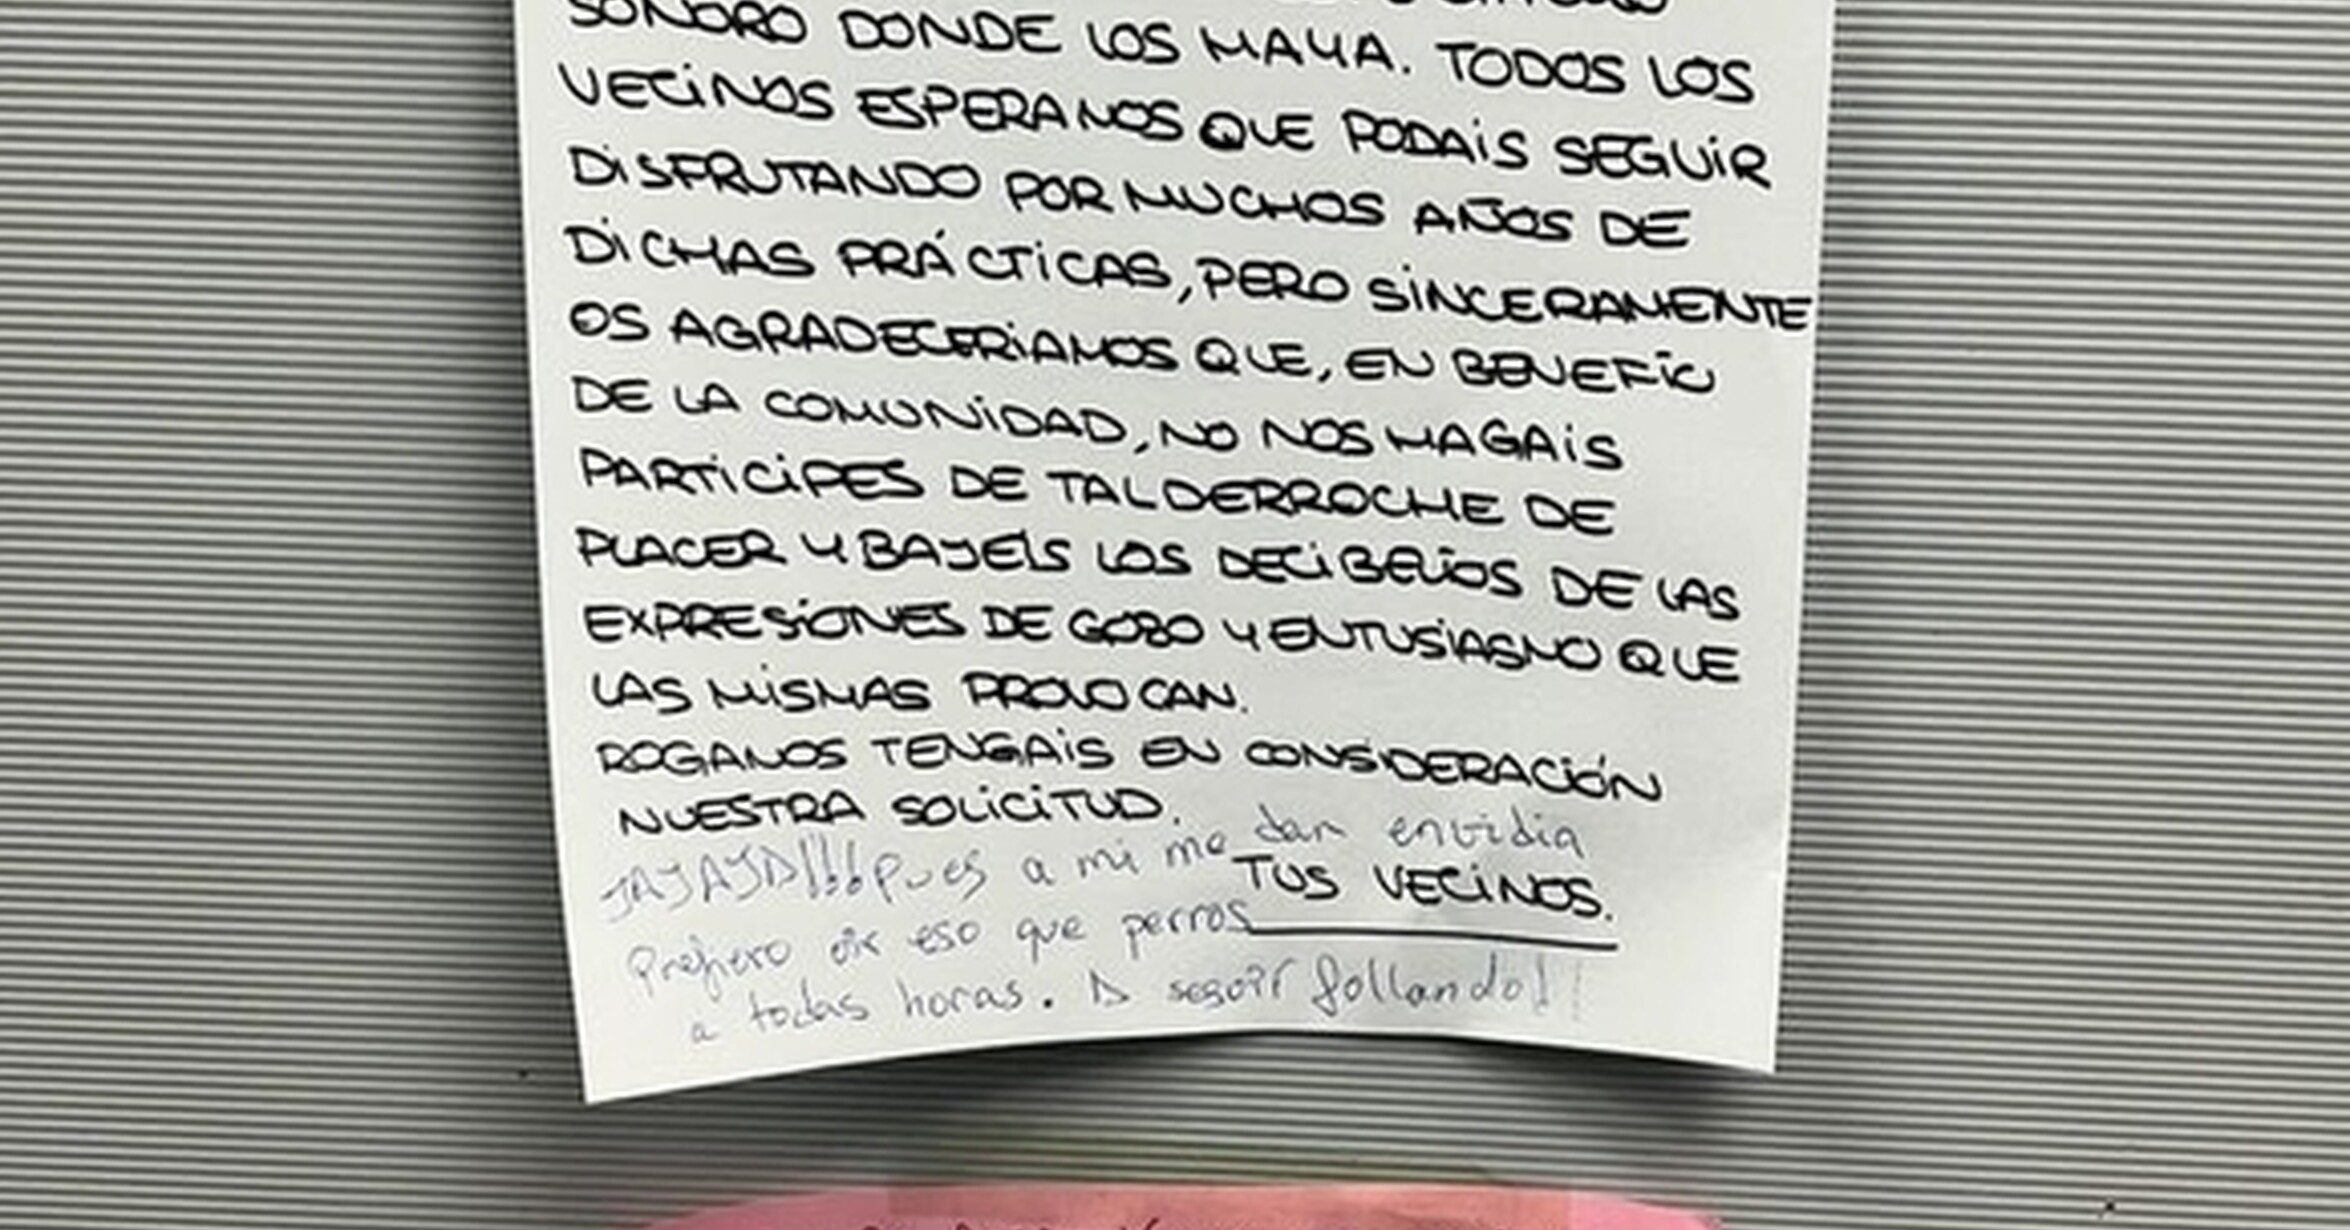 SONORO DONDE LOS HAYA. TODOS LOS
VECINOS ESPERAMOS QUE PODAIS SEGUIR
DISFRUTANDO POR MUCHOS AÑOS DE
DICHAS PRÁCTICAS, PERO SINCERAMENTE
OS AGRADECERIAMOS QUE, EN BENEFIC
DE LA COMUNIDAD, NO NOS HAGAIS
PARTICIPES DE TAL DERROCHE DE
PLACER Y BAJEIS LOS DECIBELIOS DE LAS
EXPRESIONES DE GOZO Y ENTUSIASMO QUE
LAS MISMAS PROVOCAN.
ROGAMOS TENGAIS EN CONSIDERACIÓN
NUESTRA SOLICITUD.
JAJAJA!!! pues a mi me dan envidia
TUS VECINOS.
Prefiero oir eso que perros
a todas horas. A seguir follando!!